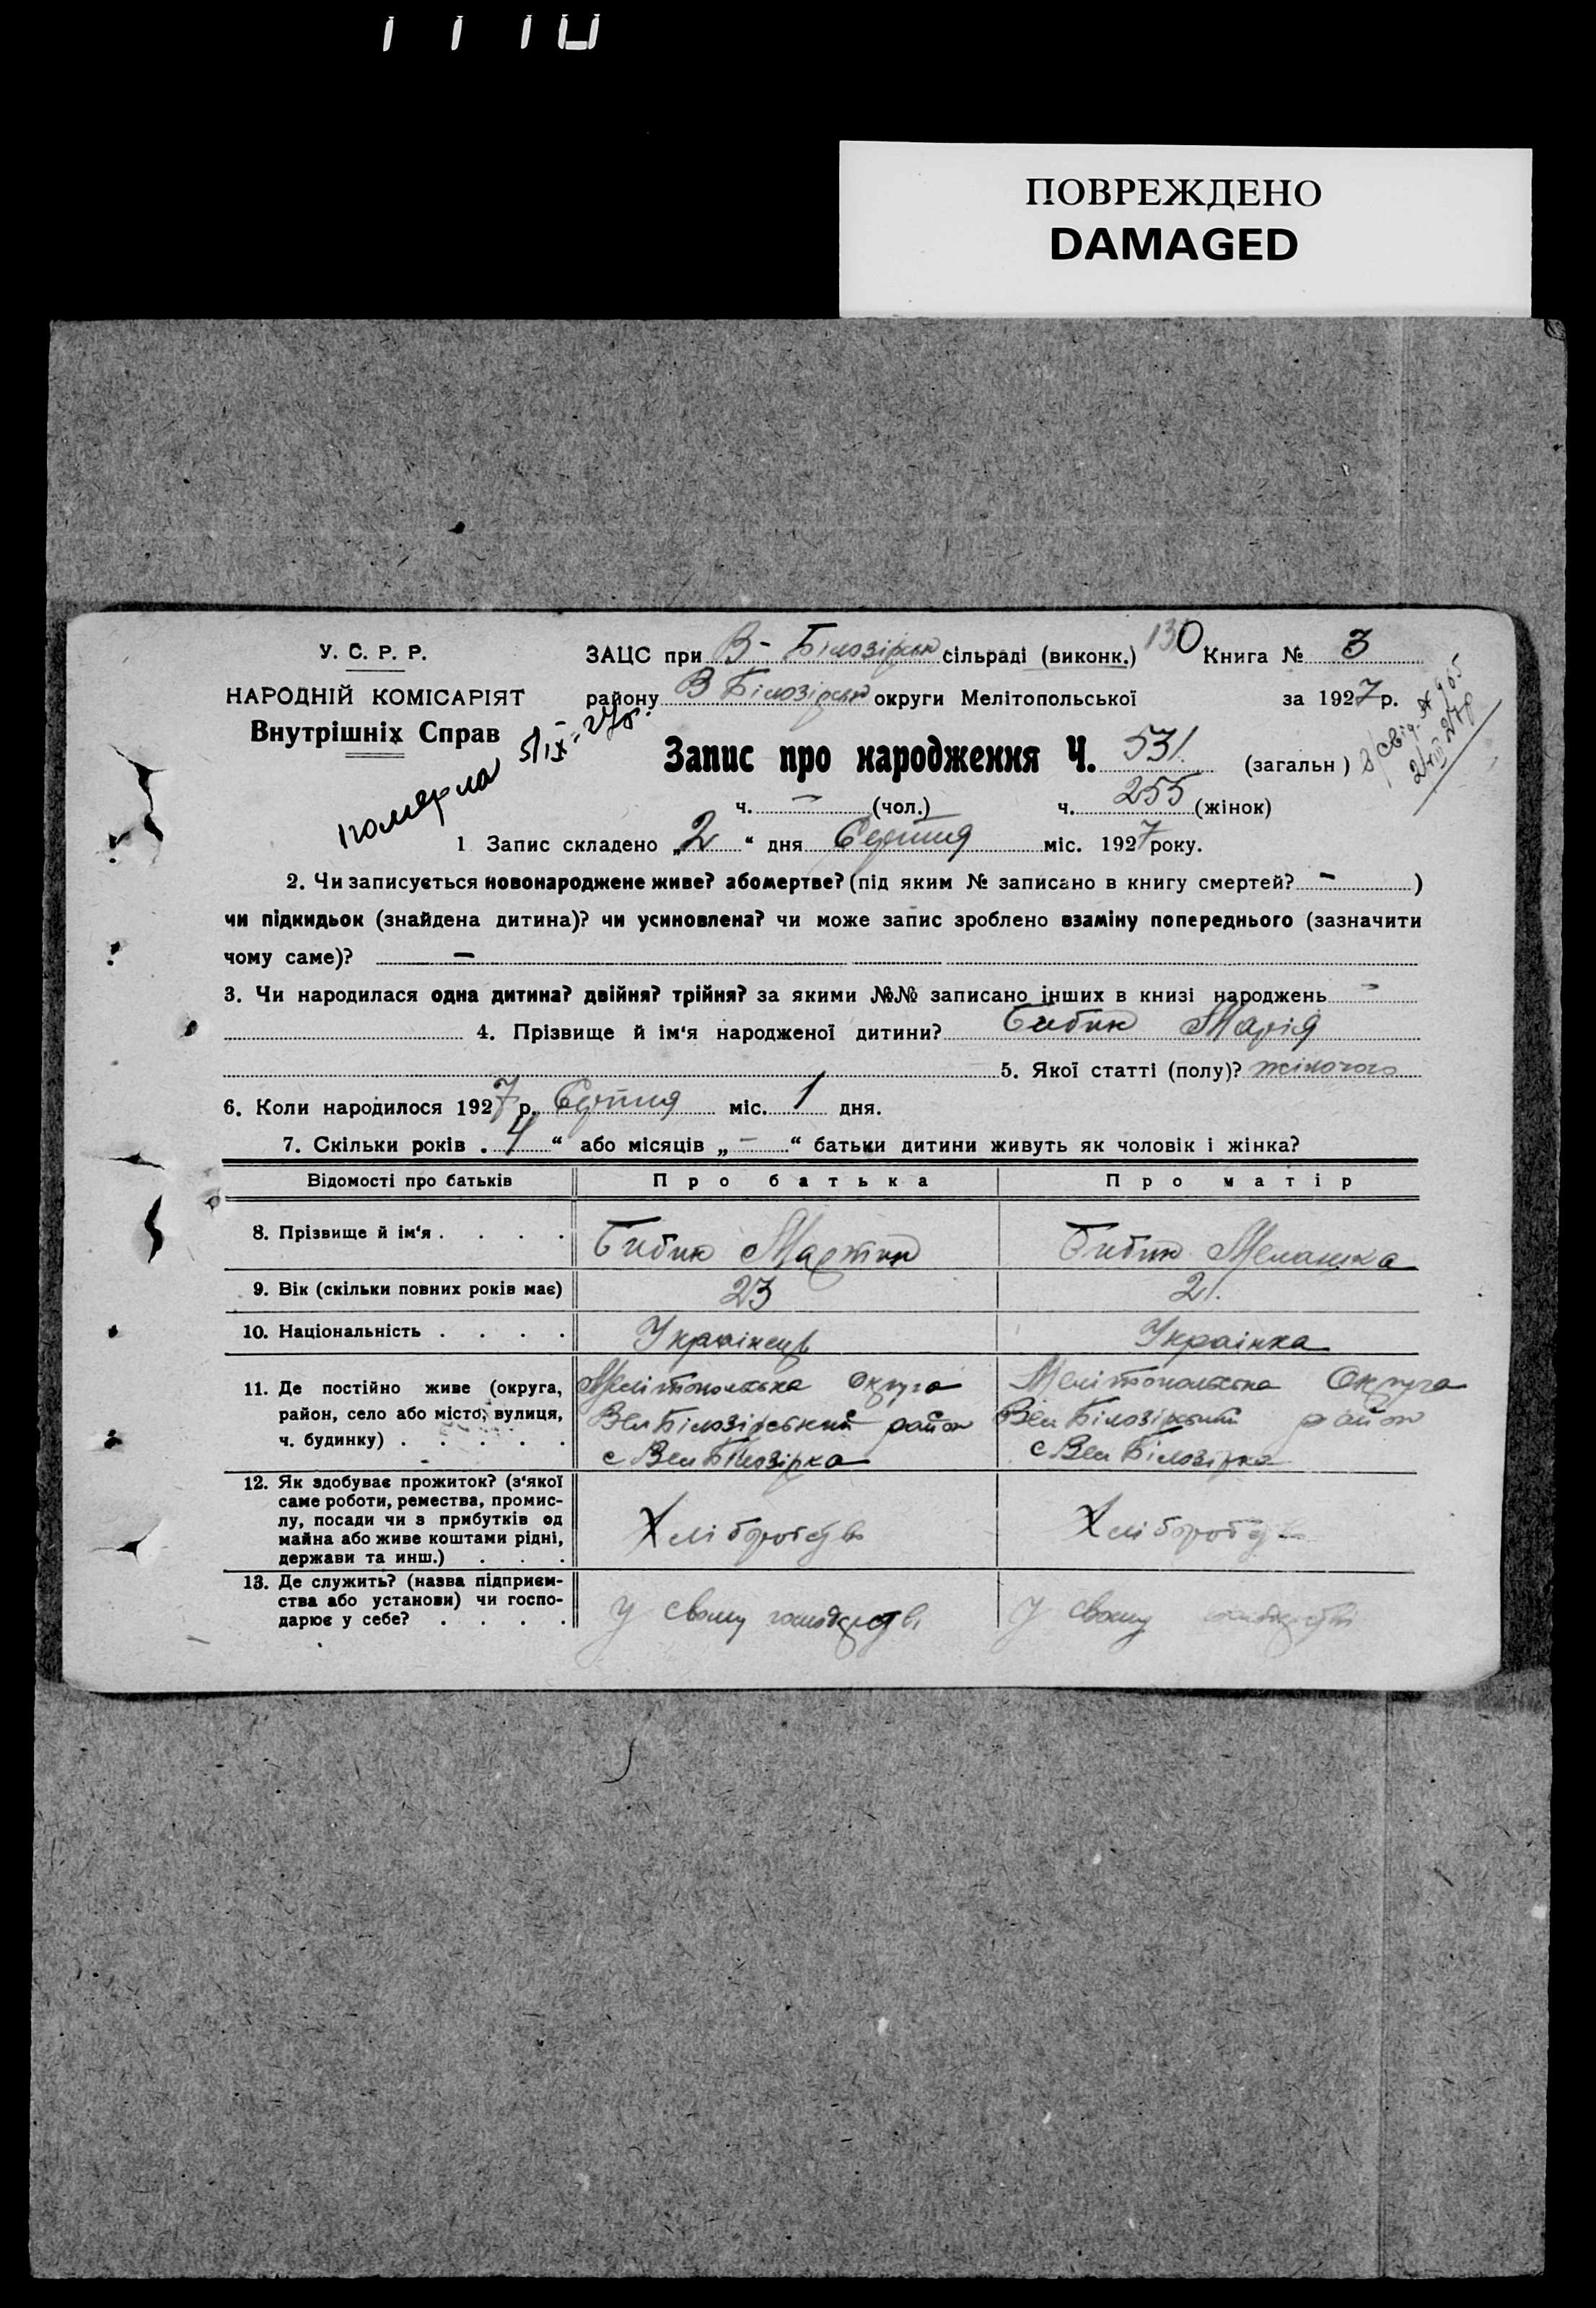 ПОВРЕЖДЕНО
DAMAGED
У. С. Р. Р.
НАРОДНІЙ КОМІСАРІЯТ
Внутрішніх Справ
померла 5/ІХ-27р.
ЗАЦС при В-Білозірськ сільраді (виконк.) 130 Книга № 3
району В Білозірськ округи Мелітопольської за 1927 р.
Свід. № 905
Запис про народження Ч. 531. (загальн)
ч. — (чол.) ч. 255 (жінок)
1 Запис складено „2“ дня Серпня міс. 1927 року.
2. Чи записується новонароджене живе? або мертве? (під яким № записано в книгу смертей? — )
чи підкидьок (знайдена дитина)? чи усиновлена? чи може запис зроблено взаміну попереднього (зазначити
чому саме)? —
3. Чи народилася одна дитина? двійня? трійня? за якими №№ записано інших в книзі народжень —
4. Прізвище й ім‘я народженої дитини? Бибик Марія
5. Якої статті (полу)? жіночого
6. Коли народилося 1927 р. Серпня міс. 1 дня.
7. Скільки років „4“ або місяців „—“ батьки дитини живуть як чоловік і жінка?
Відомості про батьків Про батька Про матір
8. Прізвище й ім‘я . . . . Бибик Мартин Бибик Меланка
9. Вік (скільки повних років має) 23 21.
10. Національність . . . . Українець Українка
11. Де постійно живе (округа, район, село або місто, вулиця, ч. будинку) . . . . .
Мелітопольська Округа
Вел Білозірський район
с Вел Білозірка
Мелітопольська Округа
Вел Білозірський район
с Вел Білозірка
12. Як здобуває прожиток? (з‘якої
саме роботи, ремества, промис-
лу, посади чи з прибутків од
майна або живе коштами рідні,
держави та инш.) . . .
Хліборобств Хліборобств
13. Де служить? (назва підприєм-
ства або установи) чи госпо-
дарює у себе? . . . .
У свому господарстві У свому господарстві